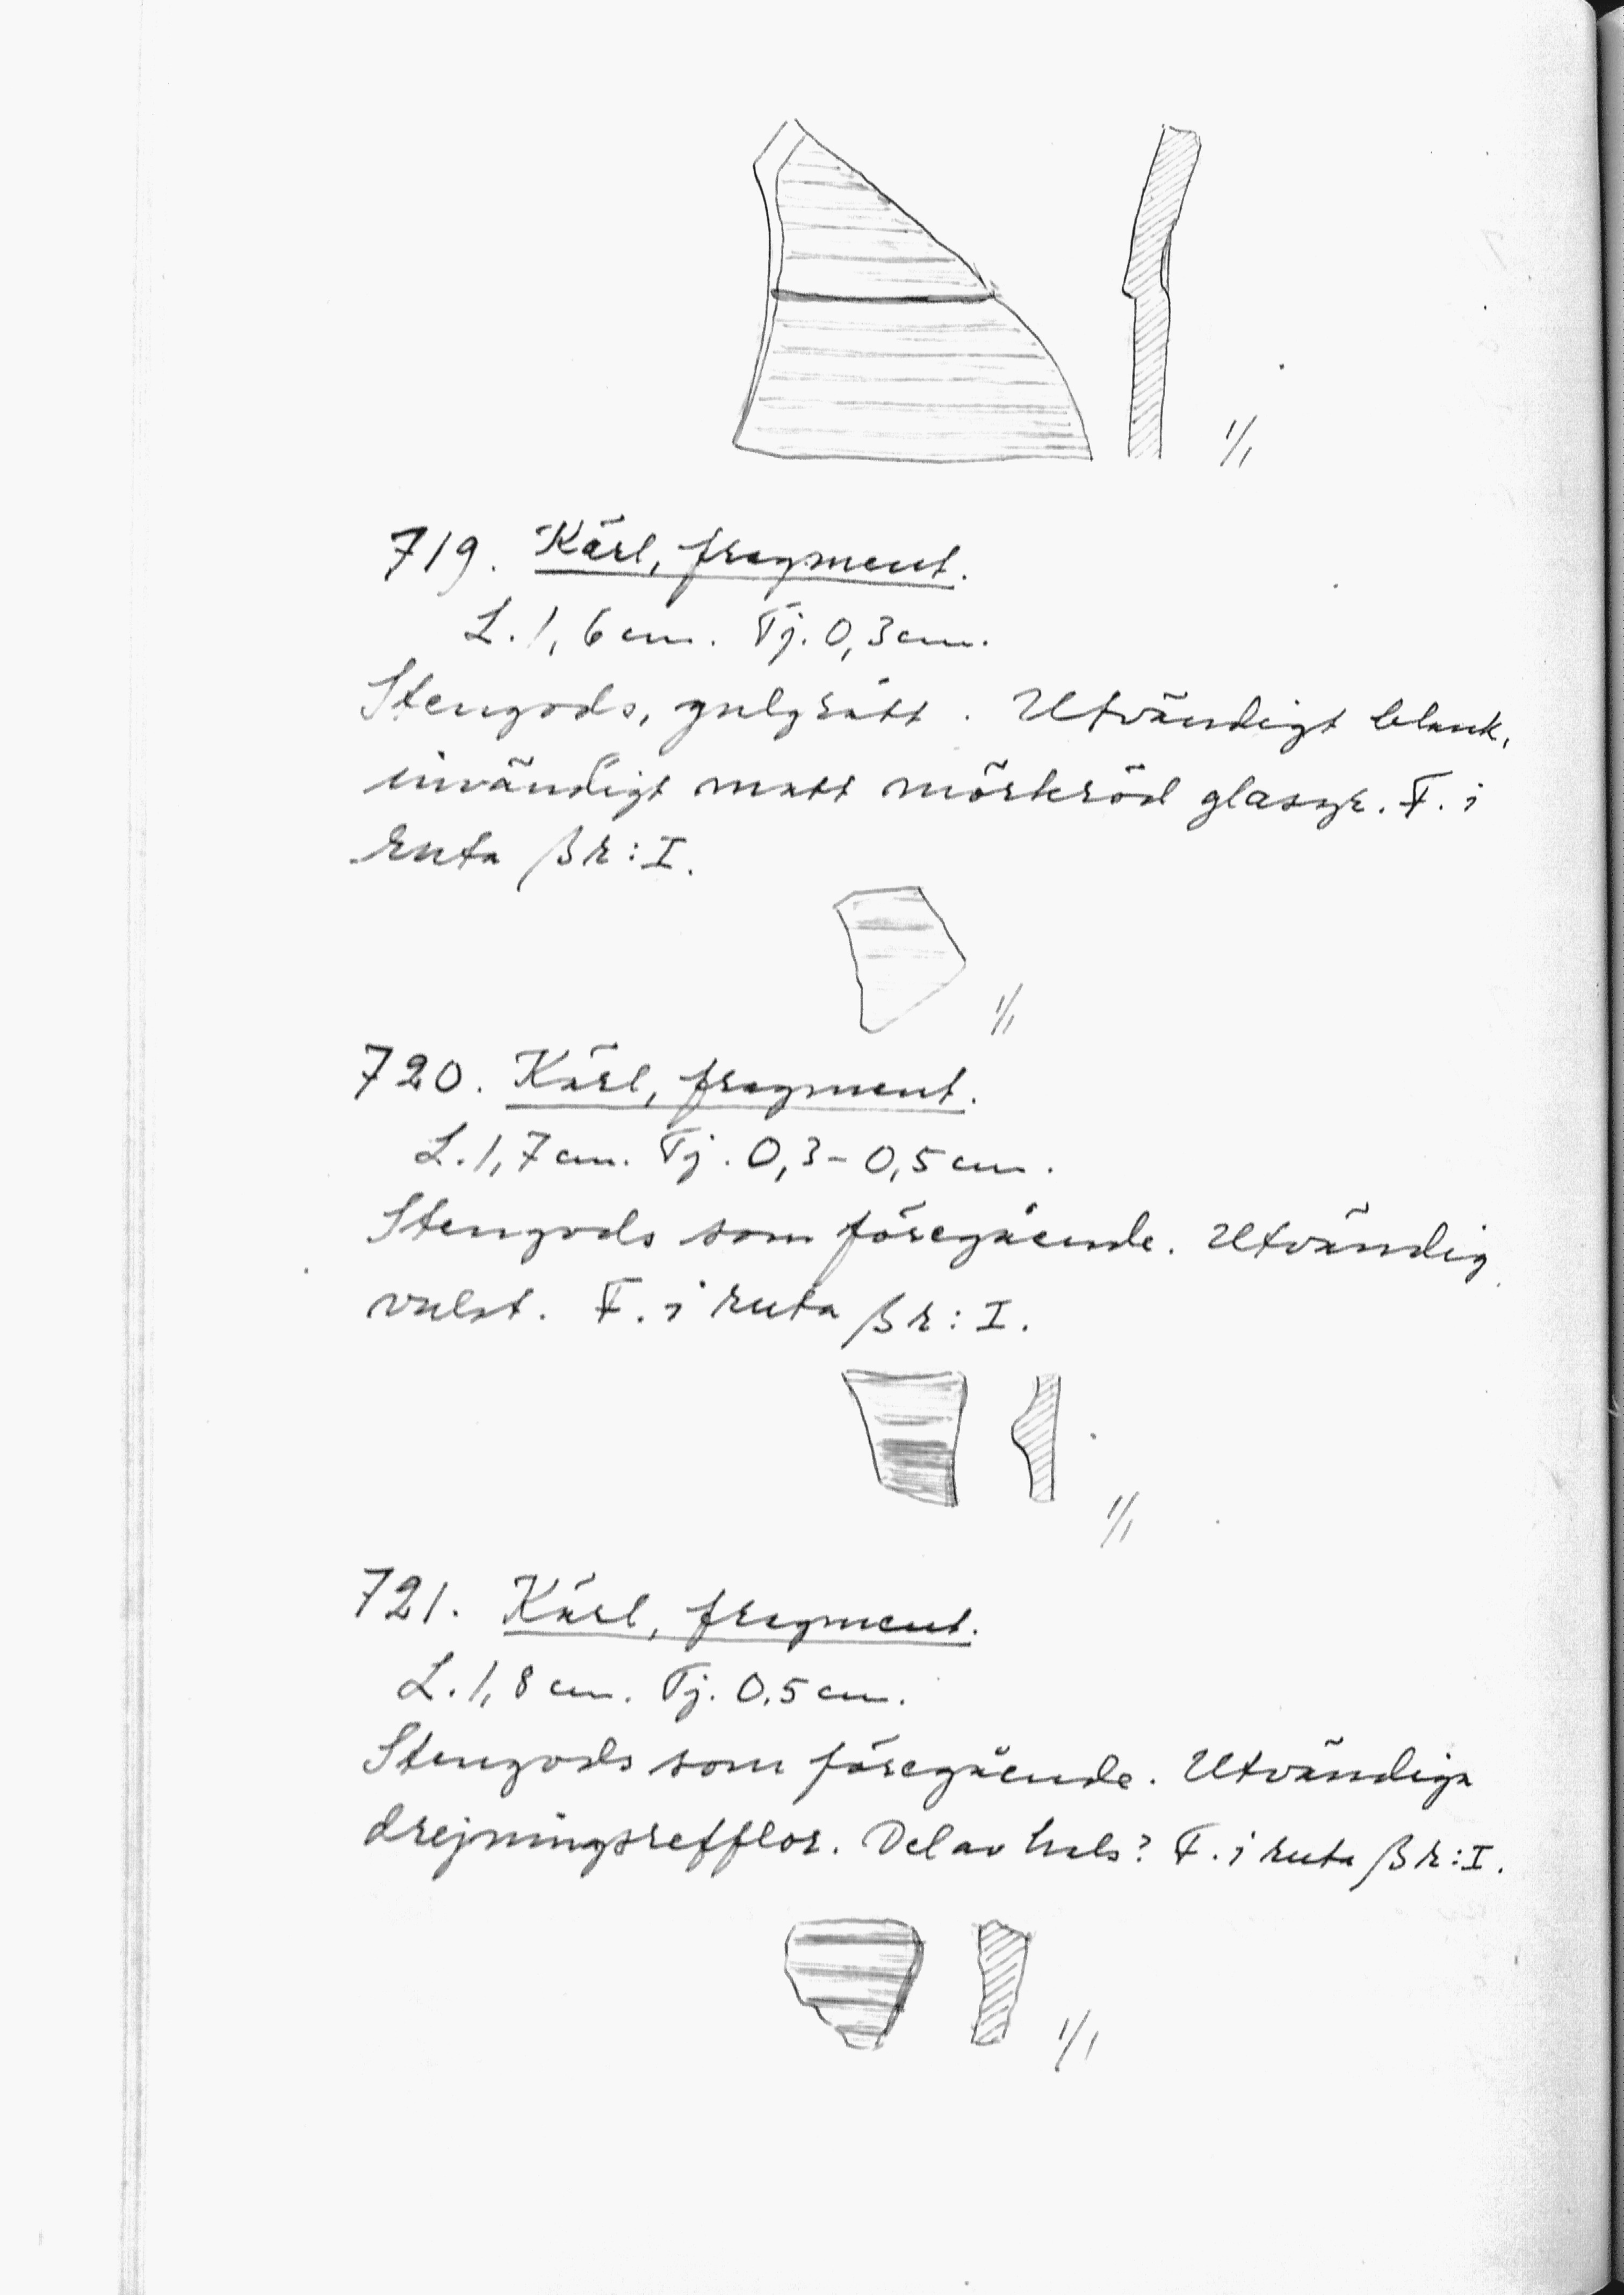 1/1
719. Kärl, fragment.
L. 1,6 cm. Tj. 0,3 cm.
Stengods, gulgrått. Utvändigt blank,
invändigt matt mörkröd glasyr. F. i
ruta βr:I.
1/1
720. Kärl, fragment.
L. 1,7 cm. Tj. 0,3-0,5 cm.
Stengods som föregående. Utvändig
vulst. F. i ruta βr:I.
1/1
721. Kärl, fragment.
L. 1,8 cm. Tj. 0,5 cm.
Stengods som föregående. Utvändiga
drejningsrefflor. Del av hals? F. i ruta βr:I.
1/1